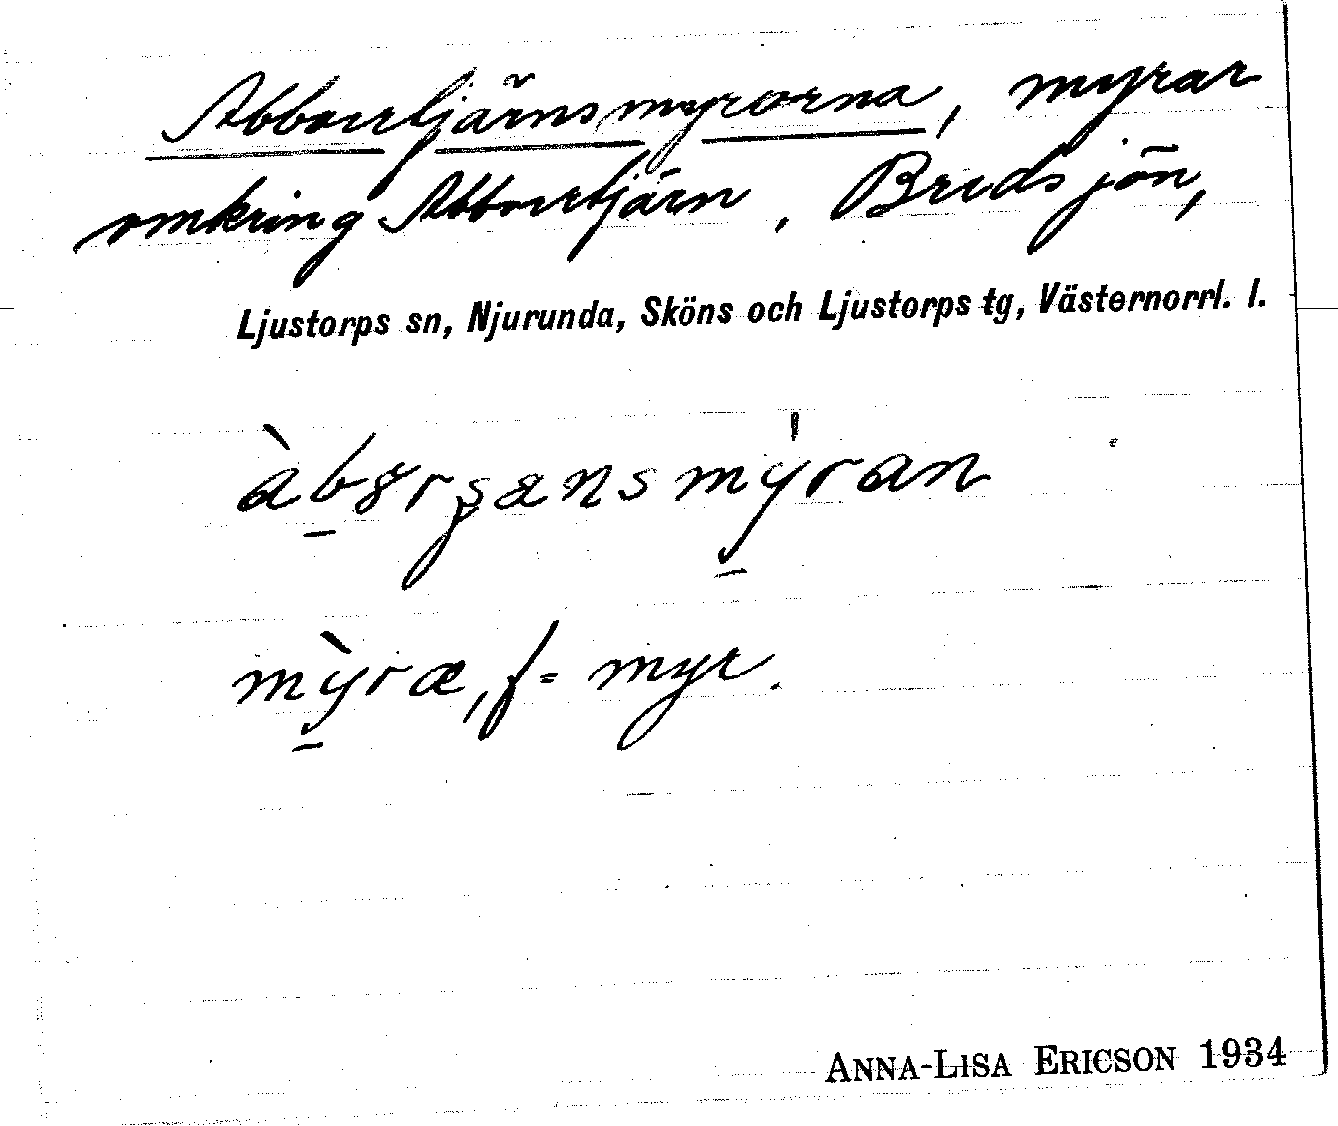 Abborrtjärnsmyrorna, myrar
omkring Abborrtjärn, Bredsjön,
Ljustorps sn, Njurunda, Sköns och Ljustorps tg, Västernorrl. l.
mỳræ, f = myr.
ANNA-LISA ERICSON 1934